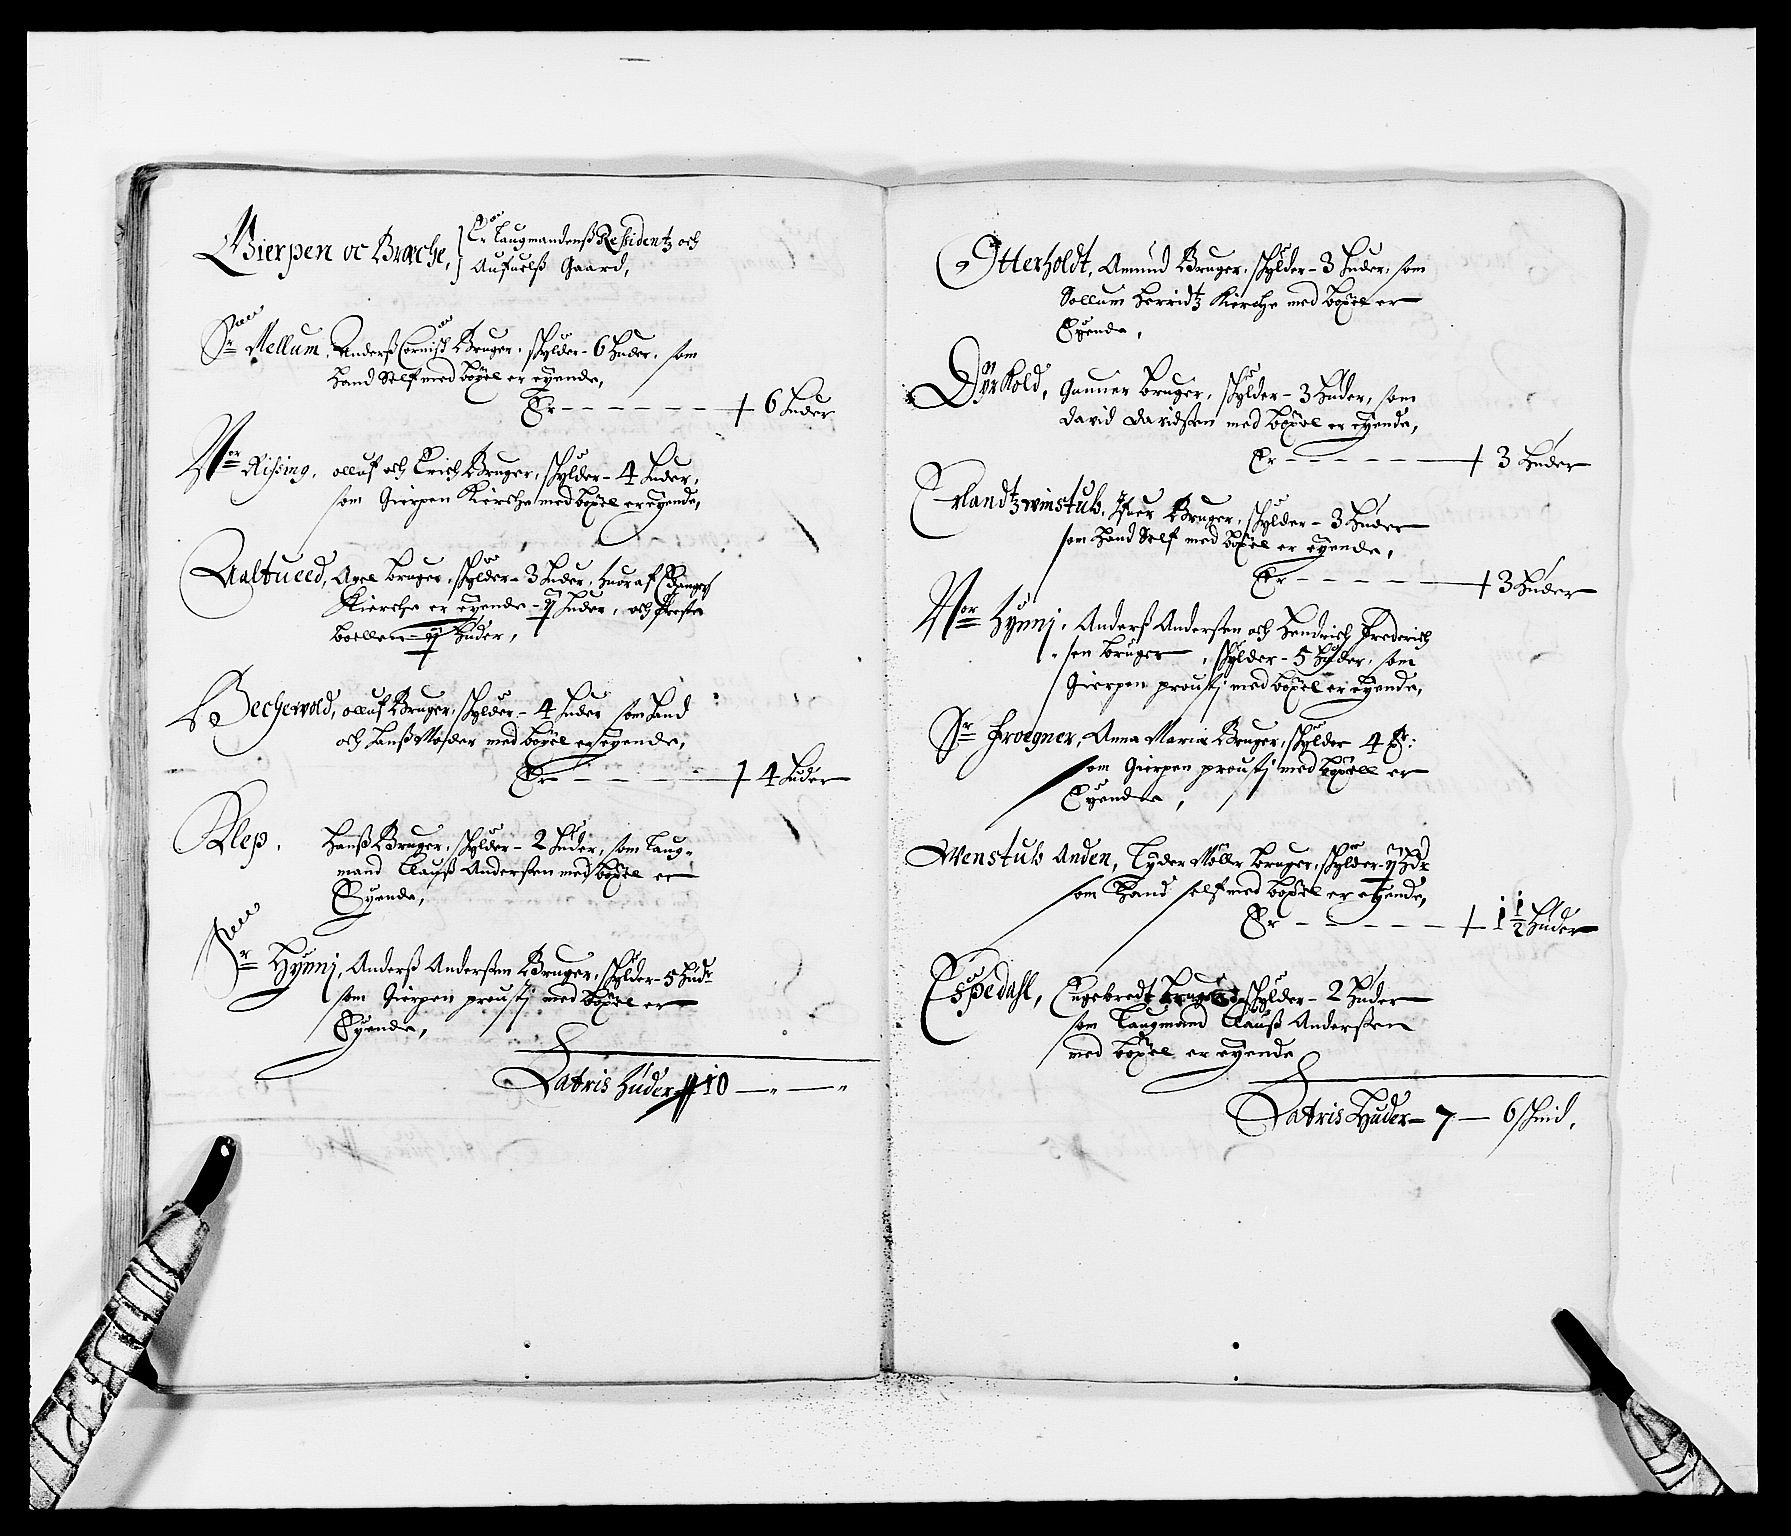 Gierpen oc Brache, } Er Laugmandenß Residentz och
Aufuelß Gaard,
Sr Mellum, Anderß Cornisch Bruger, skylder - 6 Huder, som
Hand Self med bøxel er eyende,
Er - - - - - - + 6 Huder
Nor Rising, olluf och Erich Bruger, skylder - 4 Huder,
som Gierpen Kierche med boxel er eyende,
Aaltueed, Axel bruger, skylder - 3 Huder, huoraf
Kierche er eyende - Huder, och Preste
boellen - Huder,
Bechewold, olluf Bruger, skylder - 4 Huder som Hand
och Hanß Møder med boxel er eyende,
Er - - - - - + 4 Huder
Klep, Hanß Bruger, skylder - 2 Huder, som Laug-
mand Clauß Andersen med boxel er
Eyende,
Sr Hynnj, Anderß Andersen Bruger, skylder - 5 Hudr
som Gierpen proustj med boxel er
Eyende,
Latris Huder 10 - " - "
Otterholdt, Amund Bruger, skylder - 3 Huder, som
Sollum Herridtz Kierche med boxel er
Eyende,
Dyrkold, Gunner bruger, skylder - 3 Huder, som
David Davidsen med boxel er eyende,
Er - - - - - + 3 Huder
Erlandtzwinstub, Iffuer Bruger, skylder - 3 Huder
som Hand Self med boxel er eyende,
Er - - - - - + 3 Huder
Nor Hynnj, Anderß Andersen och Hendrich Frederich
sen bruger, skylder - 5 Huder, som
Gierpen proustj med boxel er eyende,
Sr Froegner, Anna Maria Bruger, skylder 4
som Gierpen proustj med boxell er
Eyendee,
Wenstub Anden, Tyder Møller bruger, skylder - Hudr
som Hand self med boxel er eyende,
Er - - - - - + 1 1/2 Huder
Espedahl, Engebredt bruger skylder - 2 Huder
som Laugmand Clauß Andersen
med boxel er eyende
Latris Huder - 7 - 6 skind,